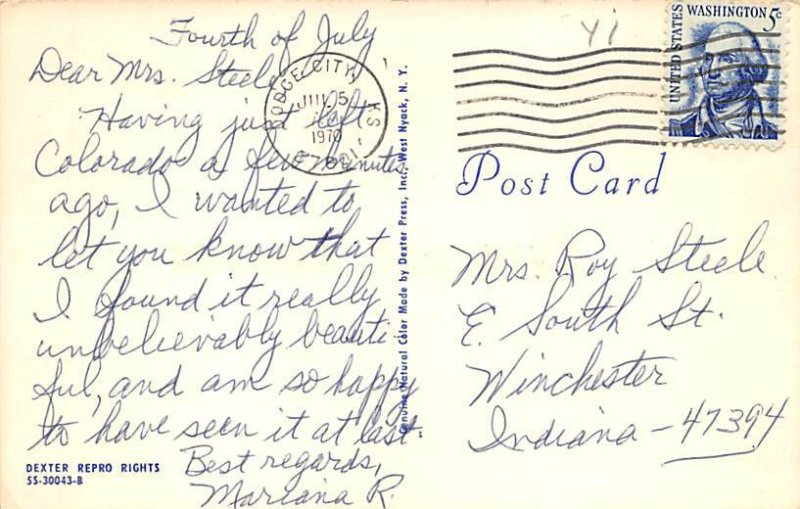 Fourth of July
Dear Mrs. Steele,
Having just left
Colorado a few minutes
ago, I wanted to
let you know that
I found it really
unbelievably beauti-
ful, and am so happy
to have seen it at last.
Best regards,
Mariana R.
DEXTER REPRO RIGHTS
SS-30043-B
DODGE CITY, KS
JUL 5
1970
67801
Genuine Natural Color Made by Dexter Press, Inc., West Nyack, N. Y.
Y1
UNITED STATES
WASHINGTON 5c
Post Card
Mrs. Roy Steele
E. South St.
Winchester
Indiana - 47394